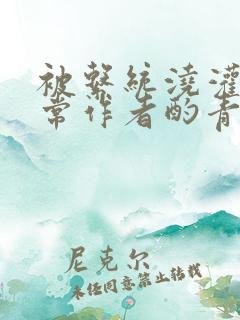 被繫統澆灌
常作者酌青
尼克尔
未经同意禁止转载